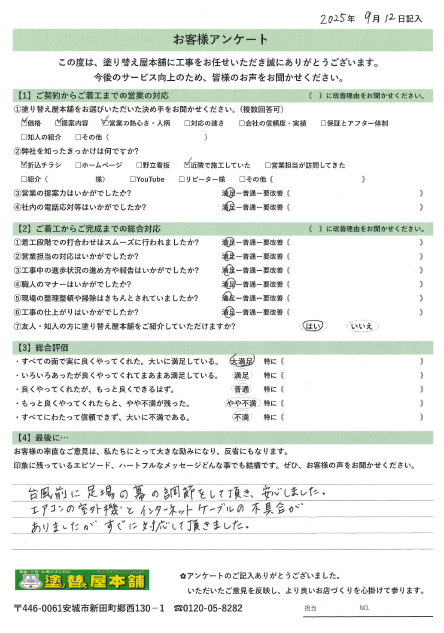 2025年 9月12日記入
お客様アンケート
この度は、塗り替え屋本舗に工事をお任せいただき誠にありがとうございます。
今後のサービス向上のため、皆様のお声をお聞かせください。
【1】ご契約からご着工までの営業の対応 ( )に改善理由をお聞かせください。
①塗り替え屋本舗をお選びいただいた決め手をお聞かせください。(複数回答可)
☑価格 ☑提案内容 ☑営業の熱心さ・人柄 □対応の速さ □会社の信頼度・実績 □保証とアフター体制
□知人の紹介 □その他( )
②弊社を知ったきっかけは何ですか?
☑折込チラシ □ホームページ □野立看板 ☑近隣で施工していた □営業担当が訪問してきた
□紹介( 様) □YouTube □リピーター様 □その他( )
③営業の提案力はいかがでしたか? 満足ー普通ー要改善( )
④社内の電話応対等はいかがでしたか? 満足ー普通ー要改善( )
【2】ご着工からご完成までの総合対応 ( )に改善理由をお聞かせください。
①着工段階での打合わせはスムーズに行われましたか? 満足ー普通ー要改善( )
②営業担当の対応はいかがでしたか? 満足ー普通ー要改善( )
③工事中の進歩状況の進め方や報告はいかがでしたか? 満足ー普通ー要改善( )
④職人のマナーはいかがでしたか? 満足ー普通ー要改善( )
⑤現場の整理整頓や掃除はきちんとされていましたか? 満足ー普通ー要改善( )
⑥工事の仕上がりはいかがでしたか? 満足ー普通ー要改善( )
⑦友人・知人の方に塗り替え屋本舗をご紹介していただけますか? はい いいえ
【3】総合評価
・すべての面で実に良くやってくれた。大いに満足している。 大満足 特に( )
・いろいろあったが良くやってくれてまあまあ満足している。 満足 特に( )
・良くやってくれたが、もっと良くできるはず。 普通 特に( )
・もっと良くやってくれたらと、やや不満が残った。 やや不満 特に( )
・すべてにわたって信頼できず、大いに不満である。 不満 特に( )
【4】最後に…
お客様の率直なご意見は、私たちにとって大きな励みになり、反省にもなります。
印象に残っているエピソード、ハートフルなメッセージどんな事でも結構です。ぜひ、お客様の声をお聞かせください。
台風前に足場の幕の調節をして頂き、安心しました。
エアコンの室外機とインターネットケーブルの不具合が
ありましたがすぐに対応して頂きました。
塗替屋本舗
✿アンケートのご記入ありがとうございました。
いただいたご意見を反映し、より良いお店づくりを心掛けて参ります。
〒446-0061安城市新田町郷西130−1 ☎0120-05-8282
担当 NO.